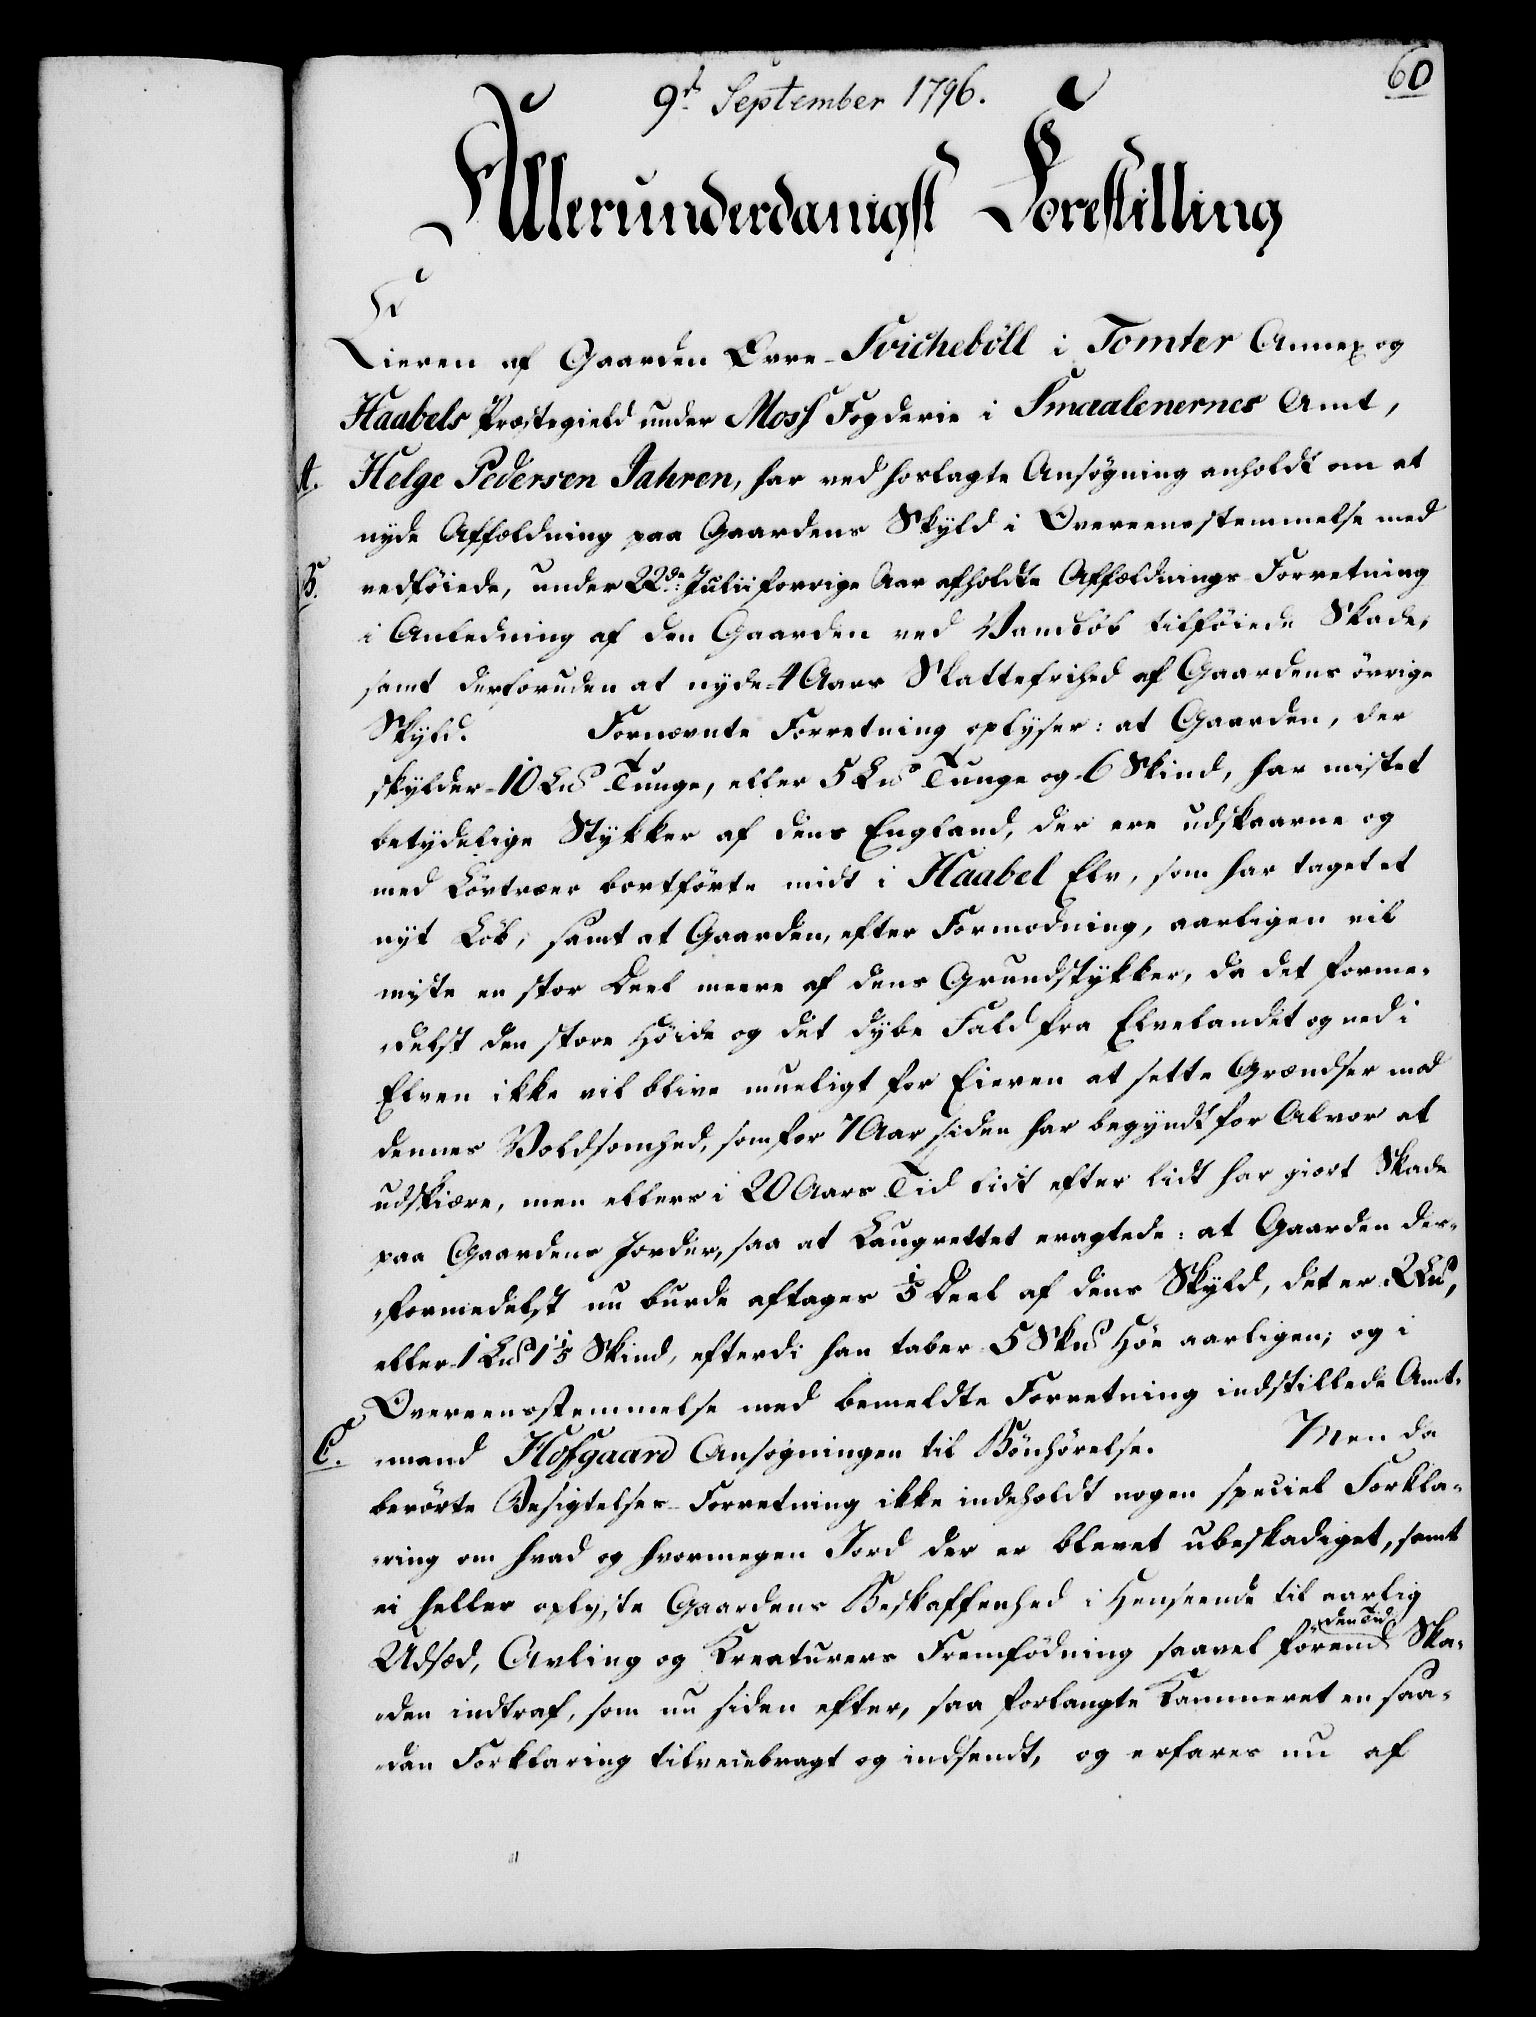 9d September 1796.
60
Allerunderdanigst Forestilling
Eieren af Gaarden Övre-Svicheböll i Tomter Annex og
Haabels Præstegield under Moss Fogderie i Smaalenernes Amt,
A. Helge Pedersen Jahren, har ved hoslagte Ansøgning anholdt om at
nyde Affældning paa Gaardens Skyld i Overeensstemmelse med
B. vedföiede, under 22de Julii forrige Aar afholdte Affældnings-Forretning
i Anledning af den Gaarden ved Vandlöb tilföiede Skade,
samt desforuden at nyde 4 Aars Skattefrihed af Gaardens övrige
Skyld. Fornævnte Forretning oplyser: at Gaarden, der
skylder 10 Lpd Tunge, eller 5 Lpd Tunge og 6 Skind, har mistet
betydelige Stykker af dens England, der ere udskaarne og
med Lövtræer bortförte midt i Haabel Elv, som har taget et
nyt Löb; samt at Gaarden, efter Formodning, aarligen vil
miste en stor Deel meere af dens Grundstykker, da det forme-
delst den store Höide og det dybe Fald fra Elvelandet og ned i
Elven ikke vil blive mueligt for Eieren at sette Grændser mod
dennes Voldsomhed, som for 7 Aar siden har begyndt for Alvor at
udskiære, men ellers i 20 Aars Tid lidt efter lidt har giort Skade
paa Gaardens Jorder, saa at Laugrettet eragtede: at Gaarden des-
formedelst nu burde aftages 1/5 Deel af dens Skyld, det er 2 Lpd,
eller 1 Lpd 1 1/5 Skind, efterdi han taber 5 Skpd Höe aarligen; og i
Overeensstemmelse med bemeldte Forretning indstillede Amt-
C. mand Hofgaard Ansøgningen til Bönhörelse. Men da
berörte Besigtelses-Forretning ikke indeholdt nogen speciel Forkla-
ring om hvad og hvormegen Jord der er blevet ubeskadiget, samt
ei heller oplyste Gaardens Beskaffenhed i Henseende til aarlig
Udsæd, Avling og Kreaturers Fremfödning saavel förend den Tid Ska-
den indtraf, som nu siden efter, saa forlangte Kammeret en saa-
dan Forklaring tilveiebragt og indsendt, og erfares nu af